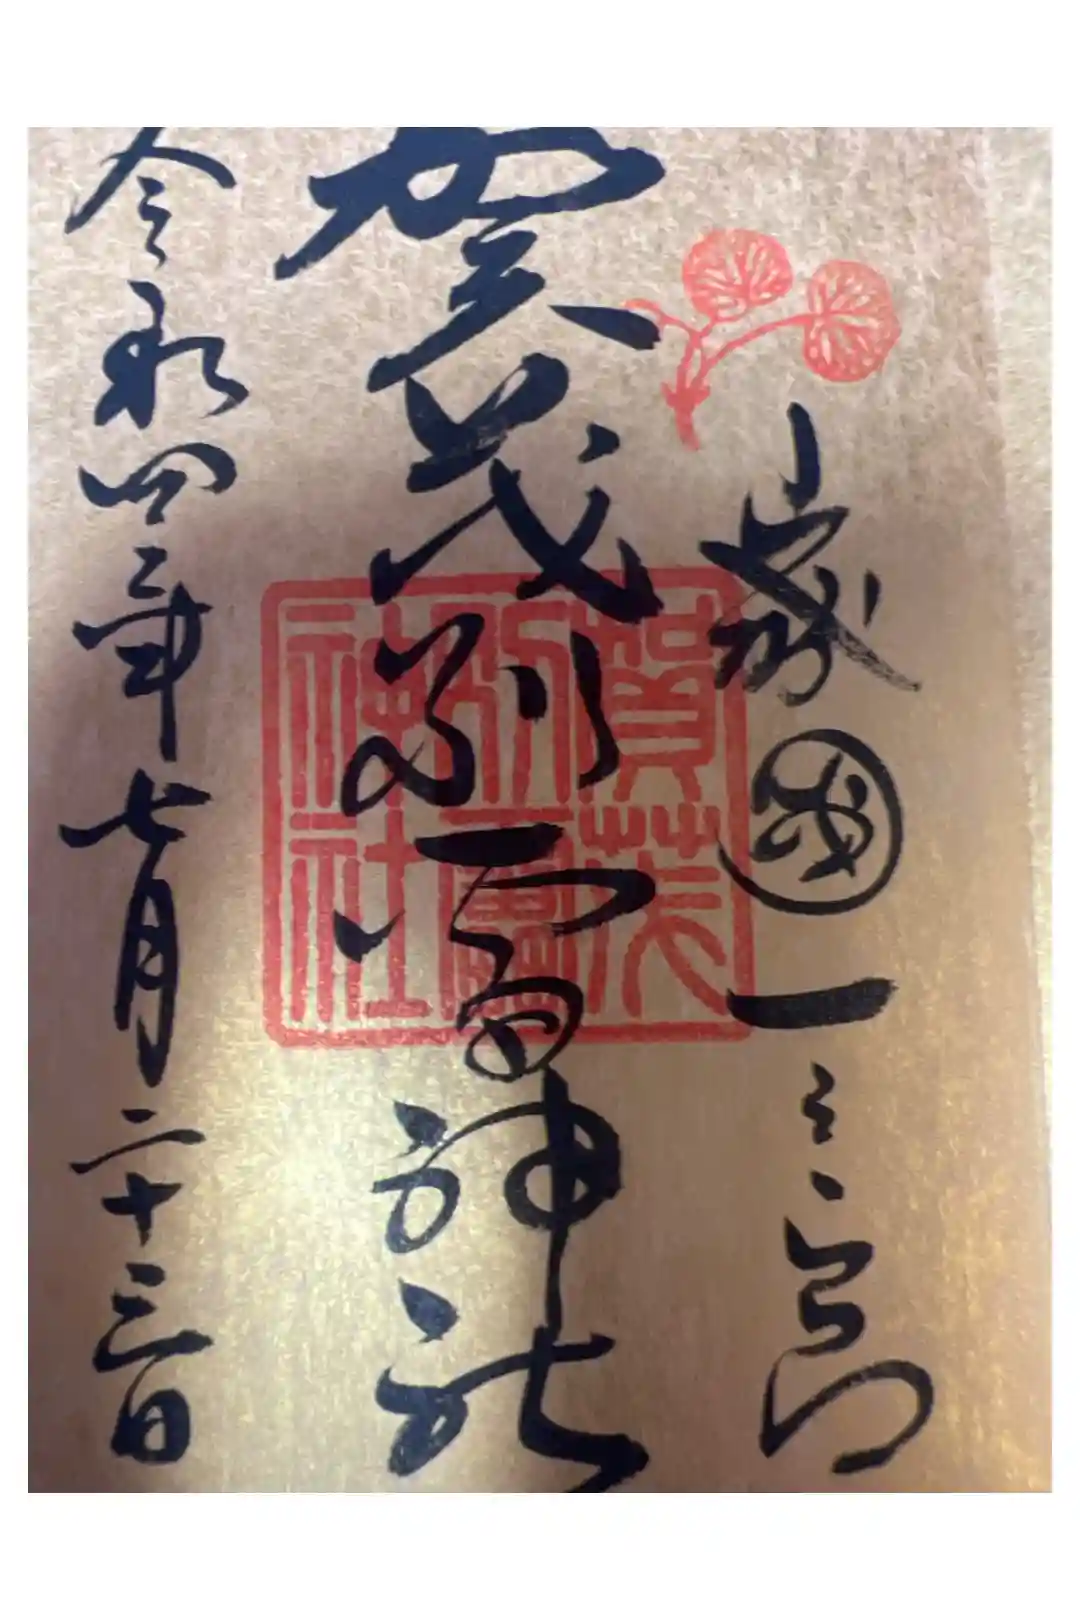 山城國一之宮
賀茂別雷神社
令和四年七月二十三日
賀茂
別雷
神社